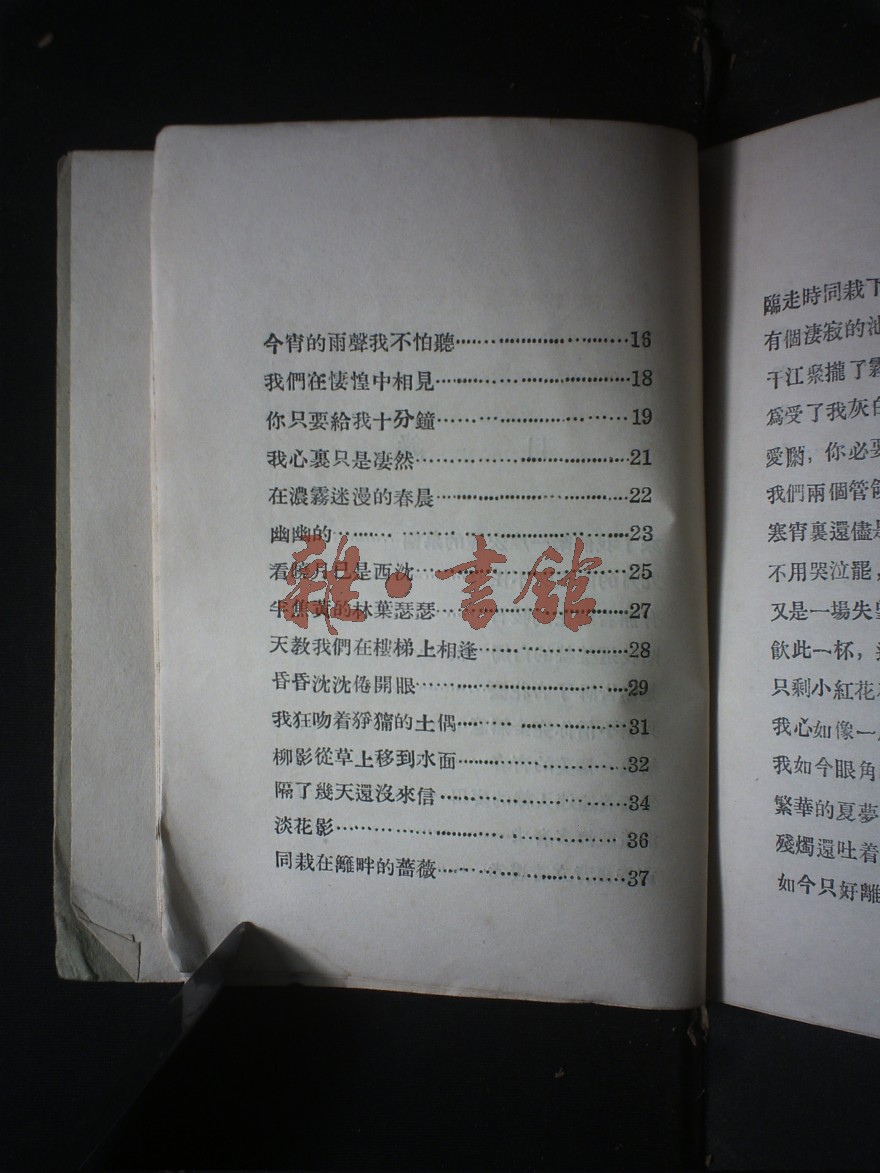 今宵的雨聲我不怕聽……………………16
我們在悽惶中相見……………………18
你只要給我十分鐘……………………19
我心裏只是凄然……………………21
在濃霧迷漫的春晨……………………22
幽幽的……………………23
看曉月已是西沈……………………25
半焦黃的林葉瑟瑟……………………27
天教我們在樓梯上相逢……………………28
昏昏沈沈倦開眼……………………29
我狂吻着猙獰的土偶……………………31
柳影從草上移到水面……………………32
隔了幾天還沒來信……………………34
淡花影……………………36
同栽在籬畔的薔薇……………………37
雜·書館
臨走時同栽下
有個淒寂的池
千江聚攏了霧
爲受了我灰白
愛㘎，你必要
我們兩個管
寒宵裏還儘是
不用哭泣罷，
又是一場失望
飲此一杯，
只剩小紅花
我心如像一
我如今眼角
繁華的夏夢
殘燭還吐着
如今只好離